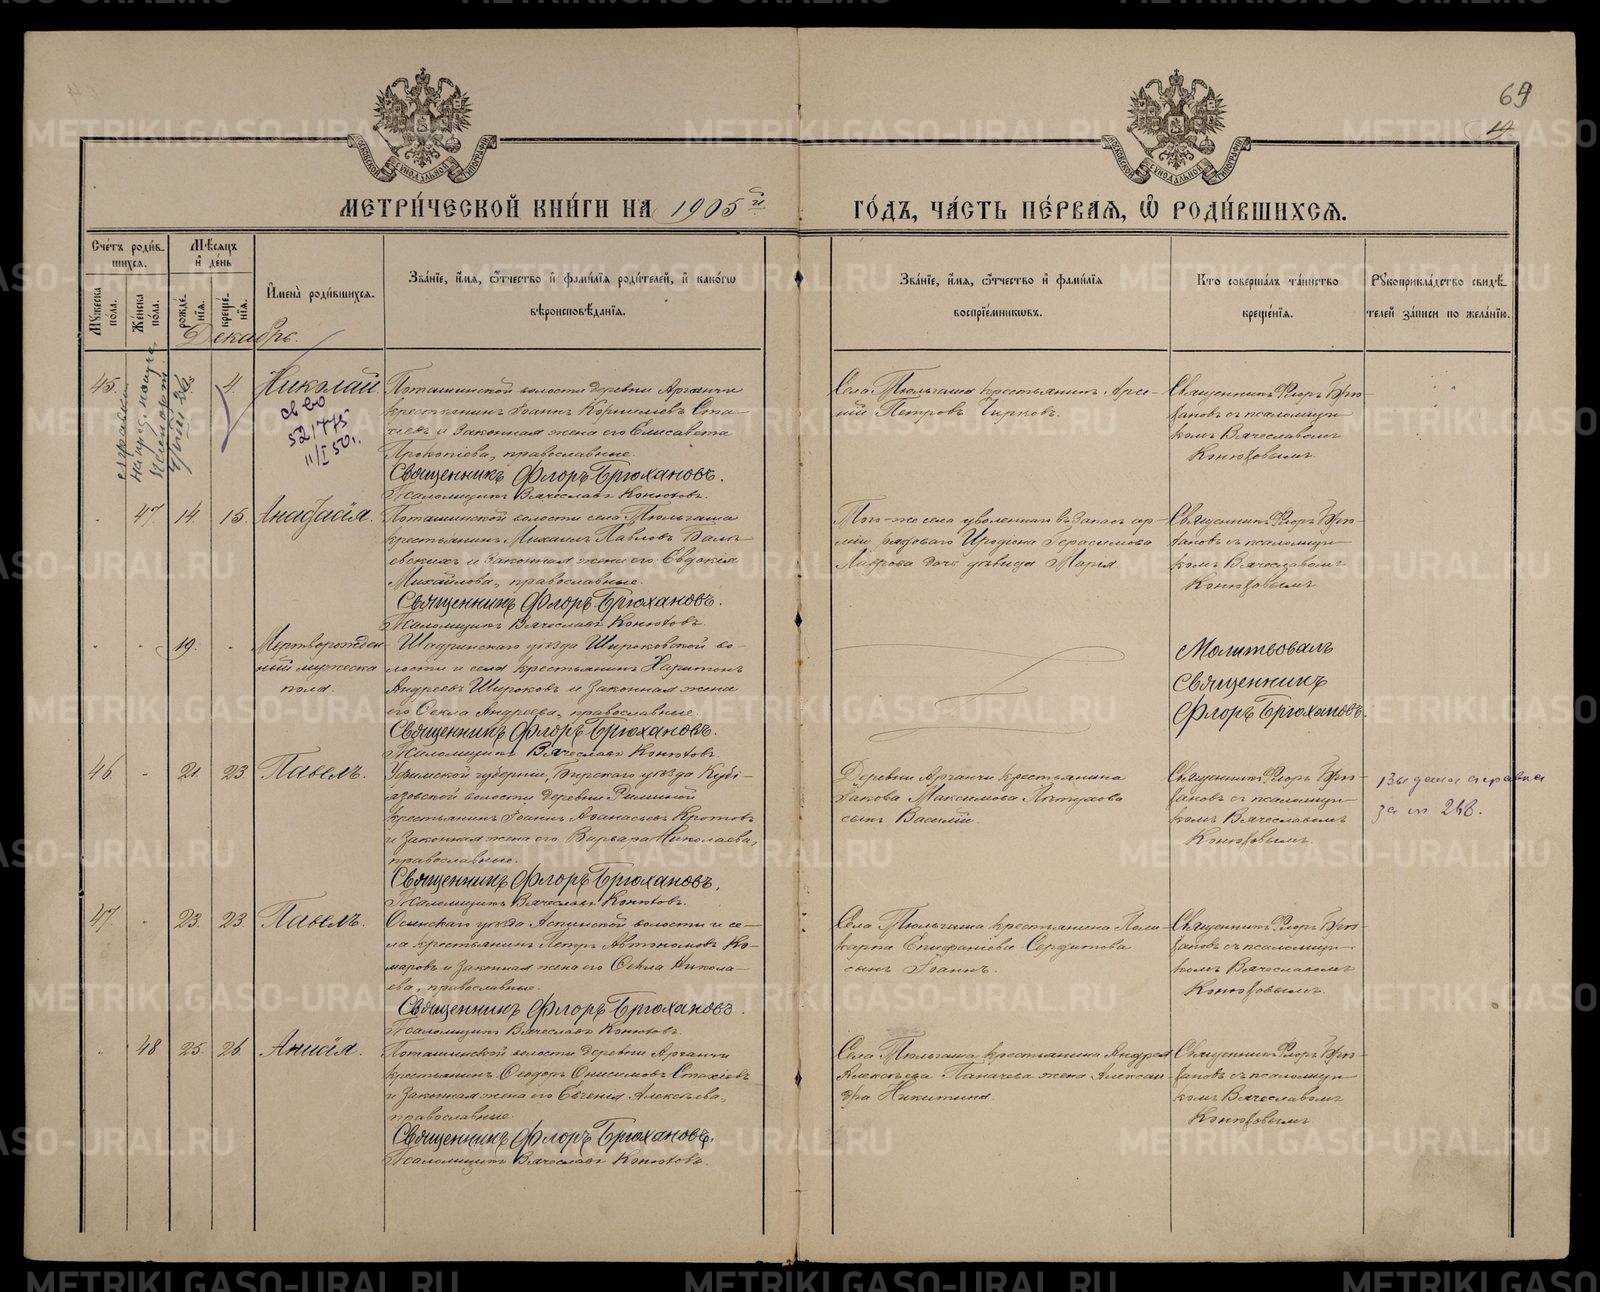 69
14
МЕТРИ́ЧЕСКОЙ КНИ́ГИ НА 1905 й ГО́ДЪ, ЧА́СТЬ ПЕ́РВАЯ, Ѡ҆ РОДИ́ВШИХСЯ.
Сче́тъ роди́вшихся.
Му́жеска по́ла.
Же́нска по́ла.
Мѣ́сяцъ и҆ де́нь
рожде́нїя.
креще́нїя.
И҆мена̀ роди́вшихся.
Зва́нїе, и҆́мя, ѻ҆́тчество и҆ фами́лїя роди́телей, и҆ како́гѡ
вѣроисповѣ́данїя.
Зва́нїе, и҆́мя, ѻ҆́тчество и҆ фами́лїя
воспрїе́мникѡвъ.
Кто̀ соверша́лъ та́инство
креще́нїя.
Рꙋкоприкла́дство свидѣ́телей за́писи по жела́нїю.
Декабрь.
45. 4. Николай
св во
52/475
11/I 50 г.
Поташинской волости деревни Арганчи
крестьянинъ Іоаннъ Корнилиевъ Ста-
хіевъ и законная жена его Елисавета
Прокопіева, православные.
Священникъ Флоръ Брюхановъ.
Псаломщикъ Вячеславъ Конюховъ.
Села Тюльгаша крестьянинъ Арсе-
ній Петровъ Чирковъ.
Священникъ Флоръ Брю-
хановъ съ псаломщи-
комъ Вячеславомъ
Конюховымъ.
47. 14. 15. Анастасія.
Поташинской волости села Тюльгаша
крестьянинъ Михаилъ Павловъ
и законная жена его Евдокія
Михайлова, православные.
Священникъ Флоръ Брюхановъ.
Псаломщикъ Вячеславъ Конюховъ.
Того-же села уволеннаго въ запасъ ар-
міи рядоваго Иродіона Герасимова
Лаврова дочь дѣвица Марія.
Священникъ Флоръ Брю-
хановъ съ псаломщи-
комъ Вячеславомъ
Конюховымъ.
19. Мертворожден-
ный мужеска
пола.
Шадринскаго уѣзда Широковской во-
лости и села крестьянинъ Харитонъ
Андреевъ Широковъ и законная жена
его Ѳекла Андреева, православные.
Священникъ Флоръ Брюхановъ.
Псаломщикъ Вячеславъ Конюховъ.
Молитвовалъ
Священникъ
Флоръ Брюхановъ.
46. 21. 23. Павелъ.
Уфимской губерніи, Бирскаго уѣзда Кубі-
язовской волости деревни
крестьянинъ Іоаннъ Аѳанасьевъ Кротовъ
и законная жена его Варвара Николаева,
православные.
Священникъ Флоръ Брюхановъ.
Псаломщикъ Вячеславъ Конюховъ.
Деревни Арганчи крестьянина
Іакова Максимова
сынъ Василій.
Священникъ Флоръ Брю-
хановъ съ псаломщи-
комъ Вячеславомъ
Конюховымъ.
Выдана справка
за № 248.
47. 23. 23. Павелъ.
Осинскаго уѣзда Аспинской волости и се-
ла крестьянинъ Петръ Автономовъ Ко-
маровъ и законная жена его Ѳекла Никола-
ева, православные.
Священникъ Флоръ Брюхановъ.
Псаломщикъ Вячеславъ Конюховъ.
Села Тюльгаша крестьянина Поли-
карпа Епифаніева Сердитова
сынъ Іоаннъ.
Священникъ Флоръ Брю-
хановъ съ псаломщи-
комъ Вячеславомъ
Конюховымъ.
48 25. 26. Анисія.
Поташинской волости деревни Арганчи
крестьянинъ Ѳеодоръ Онисимовъ Стахіевъ
и законная жена его Евгенія Алексѣева,
православные.
Священникъ Флоръ Брюхановъ.
Псаломщикъ Вячеславъ Конюховъ.
Села Тюльгаша крестьянина Андрея
Алексѣева Паначева жена Алексан-
дра Никитина.
Священникъ Флоръ Брю-
хановъ съ псаломщи-
комъ Вячеславомъ
Конюховымъ.
METRIKI.GASO-URAL.RU